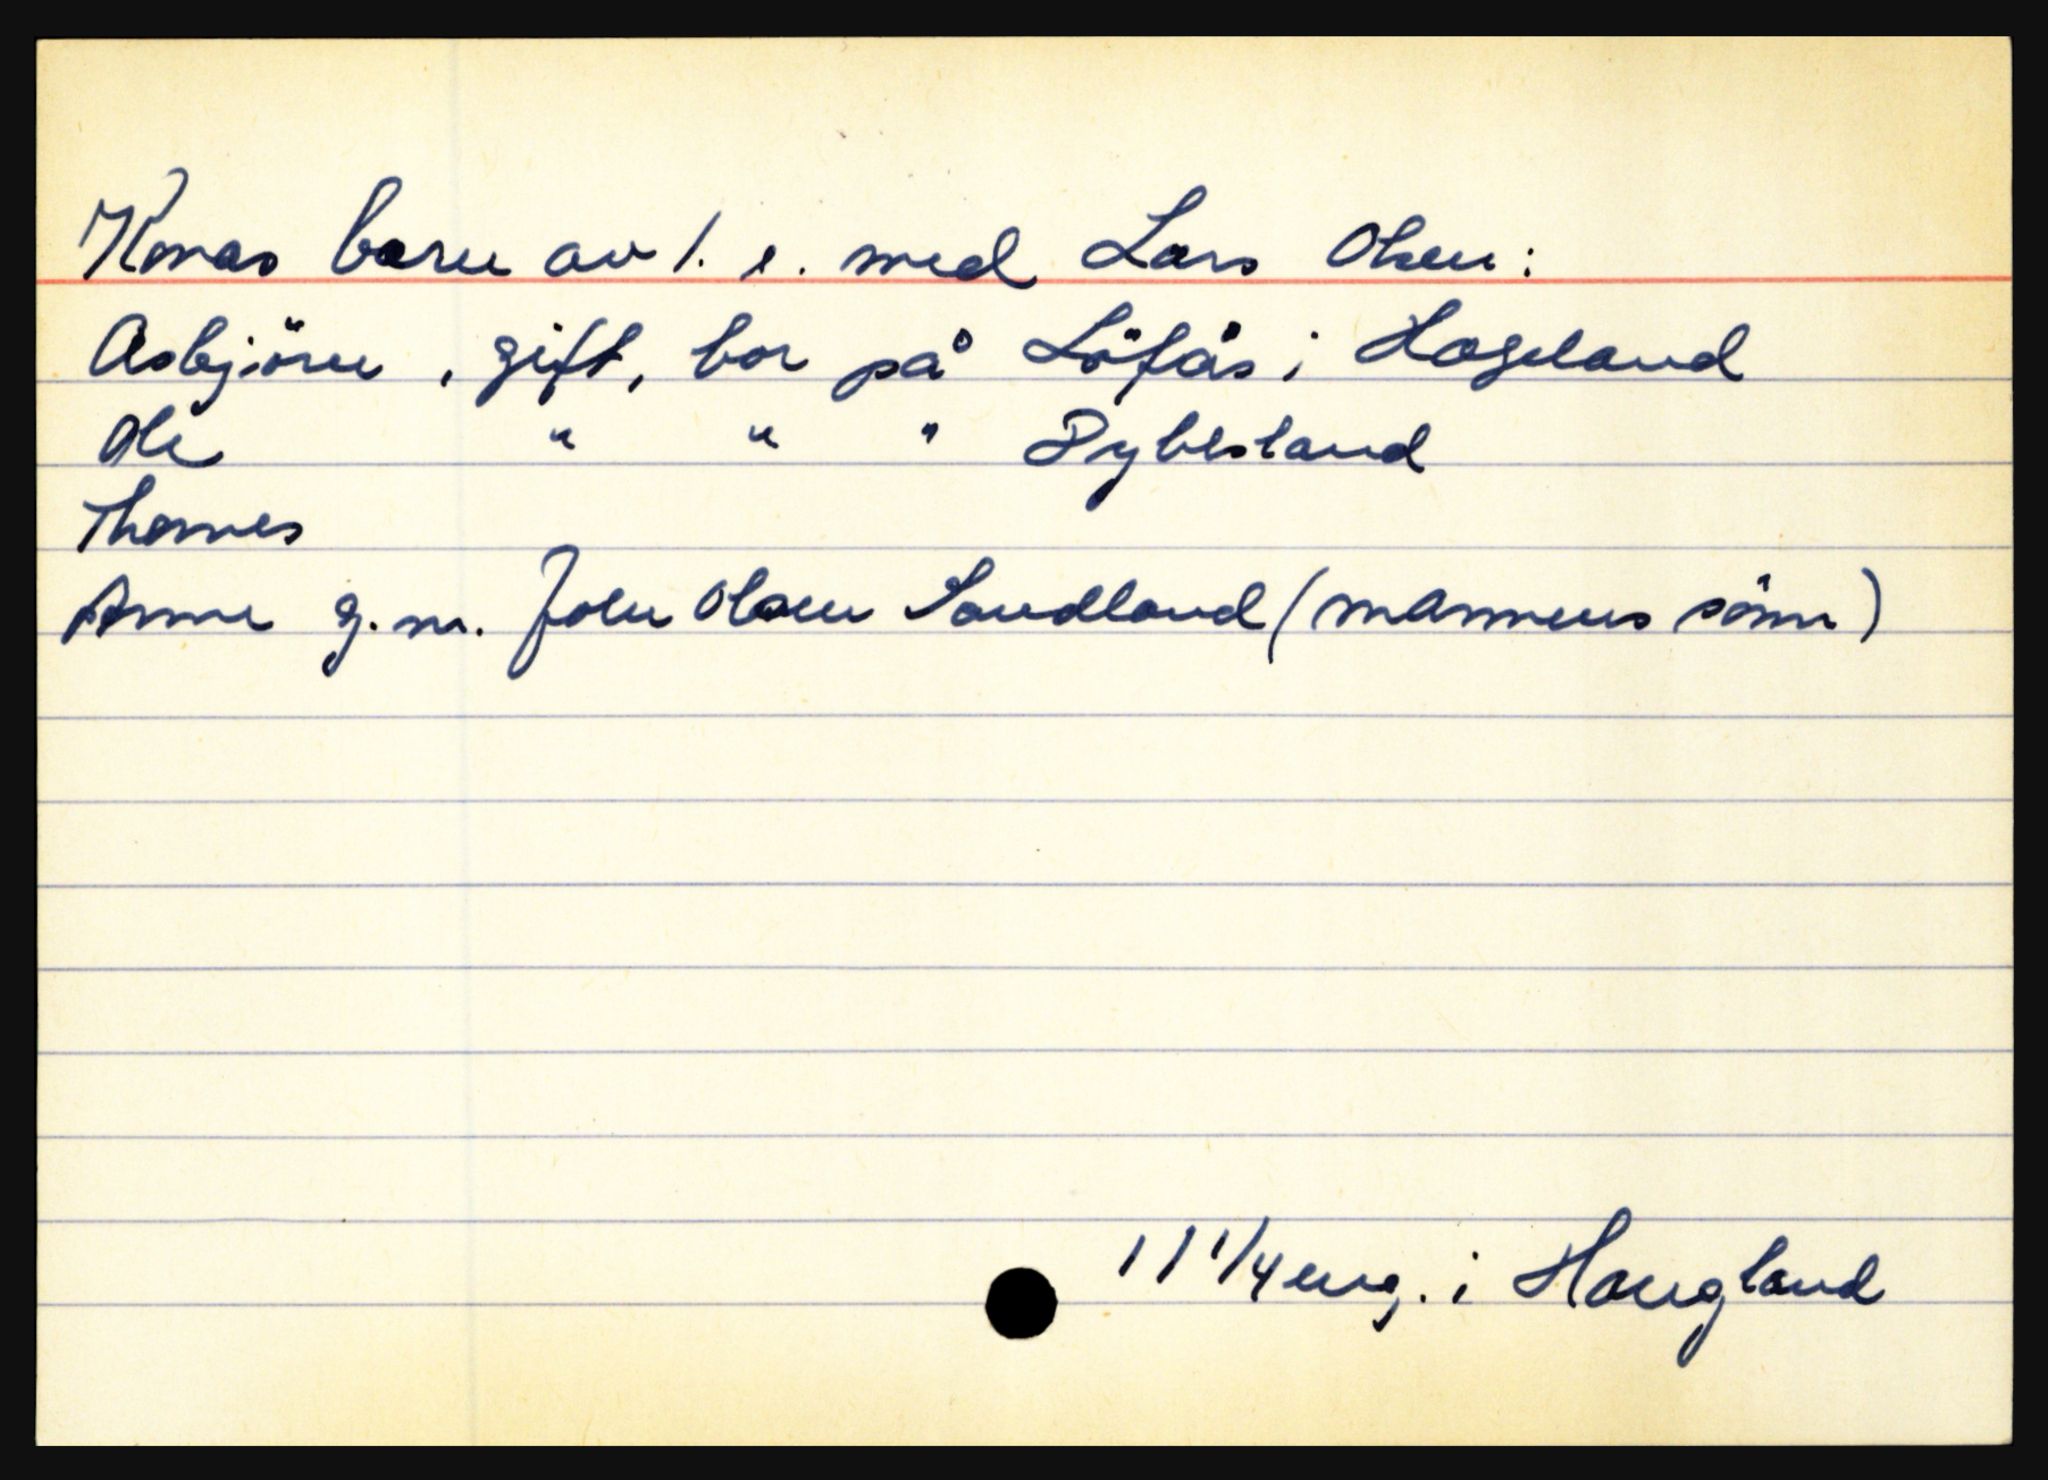 Konas barn av 1. e. med Lars Olsen:
Asbjörn, gift, bor på Löfås i Hægeland
Ole " " " Dybesland
Thomes
Anne g. m. John Olsen Sandland (mannens sönn)
11 1/4 eng. i Haugland